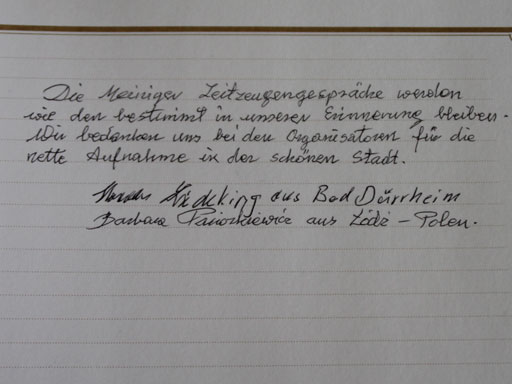 Die Meiniger Zeitzeugengespräche werden
wie den bestimmt in unserer Erinnerung bleiben.
Wir bedanken uns bei den Organisatoren für die
nette Aufnahme in der schönen Stadt.
aus Bad Dürrheim
Barbara aus Łódź – Polen.